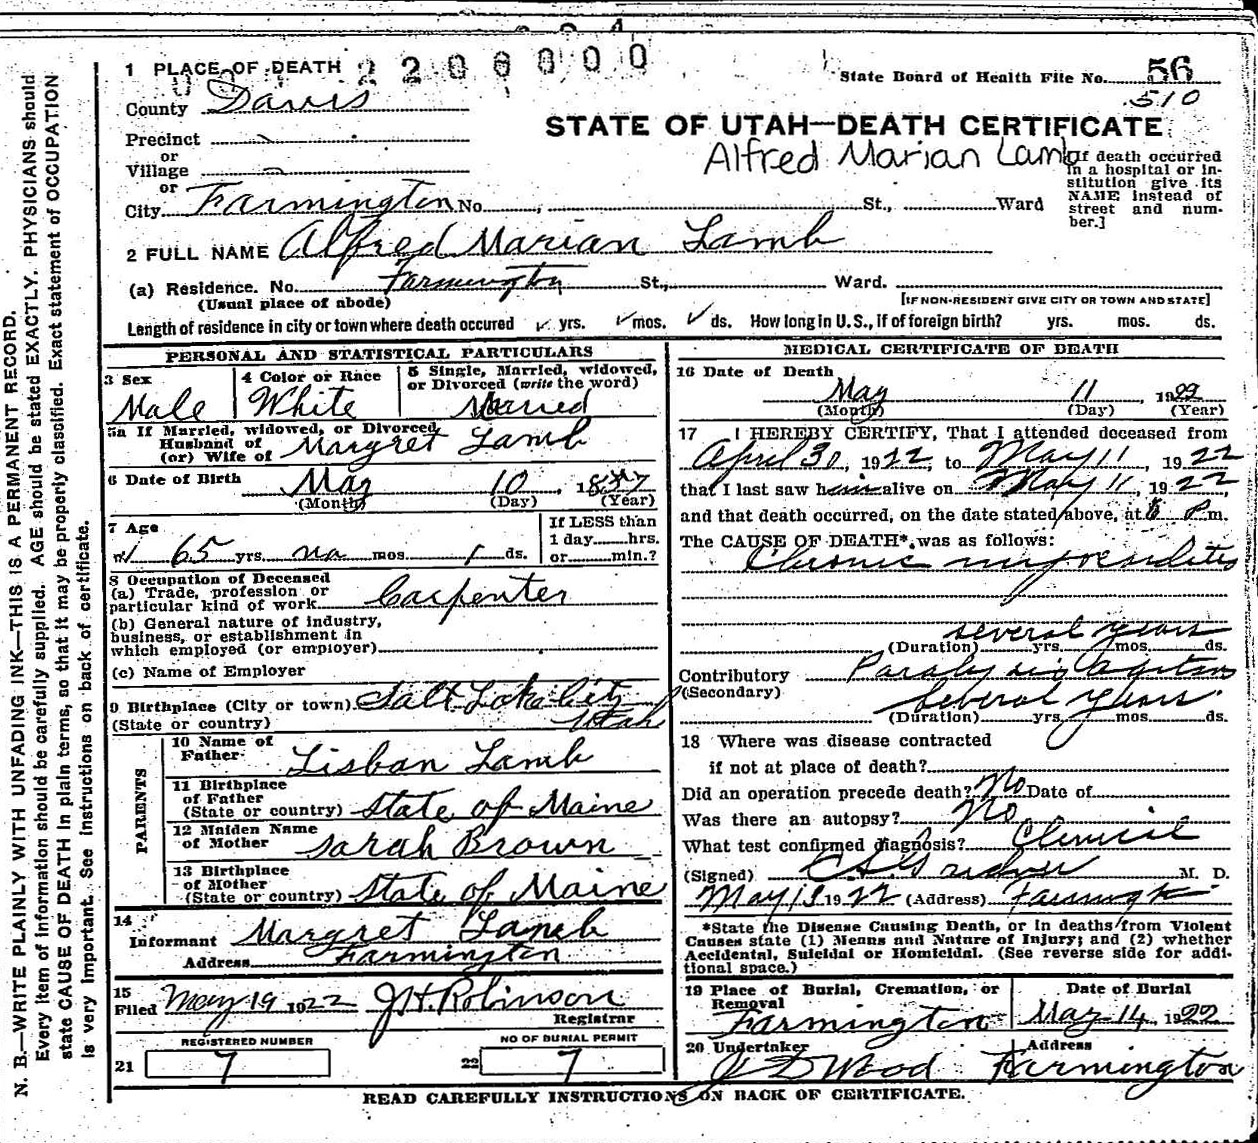 2200000
1 PLACE OF DEATH
State Board of Health File No. 56
510
County Davis
Precinct
or
Village
or
City Farmington No. St., Ward
STATE OF UTAH—DEATH CERTIFICATE
Alfred Marian Lamb
[If death occurred
in a hospital or in-
stitution give its
NAME instead of
street and num-
ber.]
2 FULL NAME Alfred Marian Lamb
(a) Residence. No. Farmington St., Ward.
(Usual place of abode)
[IF NON-RESIDENT GIVE CITY OR TOWN AND STATE]
Length of residence in city or town where death occured yrs. mos. ds. How long in U.S., if of foreign birth? yrs. mos. ds.
PERSONAL AND STATISTICAL PARTICULARS
3 Sex
Male
4 Color or Race
White
5 Single, Married, widowed,
or Divorced (write the word)
Married
5a If Married, widowed, or Divorced
Husband of
(or) Wife of Margret Lamb
6 Date of Birth May 10, 18
(Month) (Day) (Year)
7 Age
65 yrs. na mos. 1 ds.
If LESS than
1 day hrs.
or min.?
8 Occupation of Deceased
(a) Trade, profession or
particular kind of work Carpenter
(b) General nature of industry,
business, or establishment in
which employed (or employer)
(c) Name of Employer
9 Birthplace (City or town) Salt Lake City
(State or country) Utah
PARENTS
10 Name of
Father Lisban Lamb
11 Birthplace
of Father
(State or country) State of Maine
12 Maiden Name
of Mother Sarah Brown
13 Birthplace
of Mother
(State or country) State of Maine
14
Informant Margret Lamb
Address Farmington
15
Filed May 19 1922 J H Robinson
Registrar
REGISTERED NUMBER
21 7
NO OF BURIAL PERMIT
22 7
MEDICAL CERTIFICATE OF DEATH
16 Date of Death
May 11, 1922
(Month) (Day) (Year)
17 I HEREBY CERTIFY, That I attended deceased from
April 30, 1922, to May 11, 1922
that I last saw him alive on May 11, 1922,
and that death occurred, on the date stated above, at P m.
The CAUSE OF DEATH*, was as follows:
Chronic myocarditis
several years
(Duration) yrs. mos. ds.
Contributory Paralysis Agitans
(Secondary)
Several Years
(Duration) yrs. mos. ds.
18 Where was disease contracted
if not at place of death?
Did an operation precede death? No Date of
Was there an autopsy? No
What test confirmed diagnosis? Clinical
(Signed) M. D.
May 13 1922 (Address) Farmington
*State the Disease Causing Death, or in deaths from Violent
Causes state (1) Means and Nature of Injury; and (2) whether
Accidental, Suicidal or Homicidal. (See reverse side for addi-
tional space.)
19 Place of Burial, Cremation, or
Removal
Farmington
Date of Burial
May 14, 1922
20 Undertaker
J D Wood
Address
Farmington
READ CAREFULLY INSTRUCTIONS ON BACK OF CERTIFICATE.
N. B.—WRITE PLAINLY WITH UNFADING INK—THIS IS A PERMANENT RECORD.
Every item of information should be carefully supplied. AGE should be stated EXACTLY. PHYSICIANS should
state CAUSE OF DEATH in plain terms, so that it may be properly classified. Exact statement of OCCUPATION
is very important. See instructions on back of certificate.